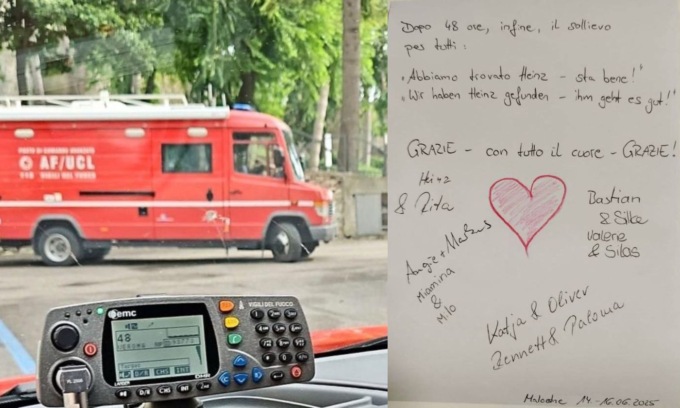 POSTO DI COMANDO AVANZATO
AF/UCL
115 VIGILI DEL FUOCO
emc
VIGILI DEL FUOCO
48
D/R CHS INT
D/R CHS INT
Dopo 48 ore, infine, il sollievo
per tutti:
"Abbiamo trovato Heinz - sta bene!"
"Wir haben Heinz gefunden - ihm geht es gut!"
GRAZIE - con tutto il cuore - GRAZIE!
Heinz
& Rita
Angie + Markus
Miamina
&
Milo
Bastian
& Silke
Valerie
& Silas
Katja & Oliver
Bennett & Paloma
14.-16.06.2025